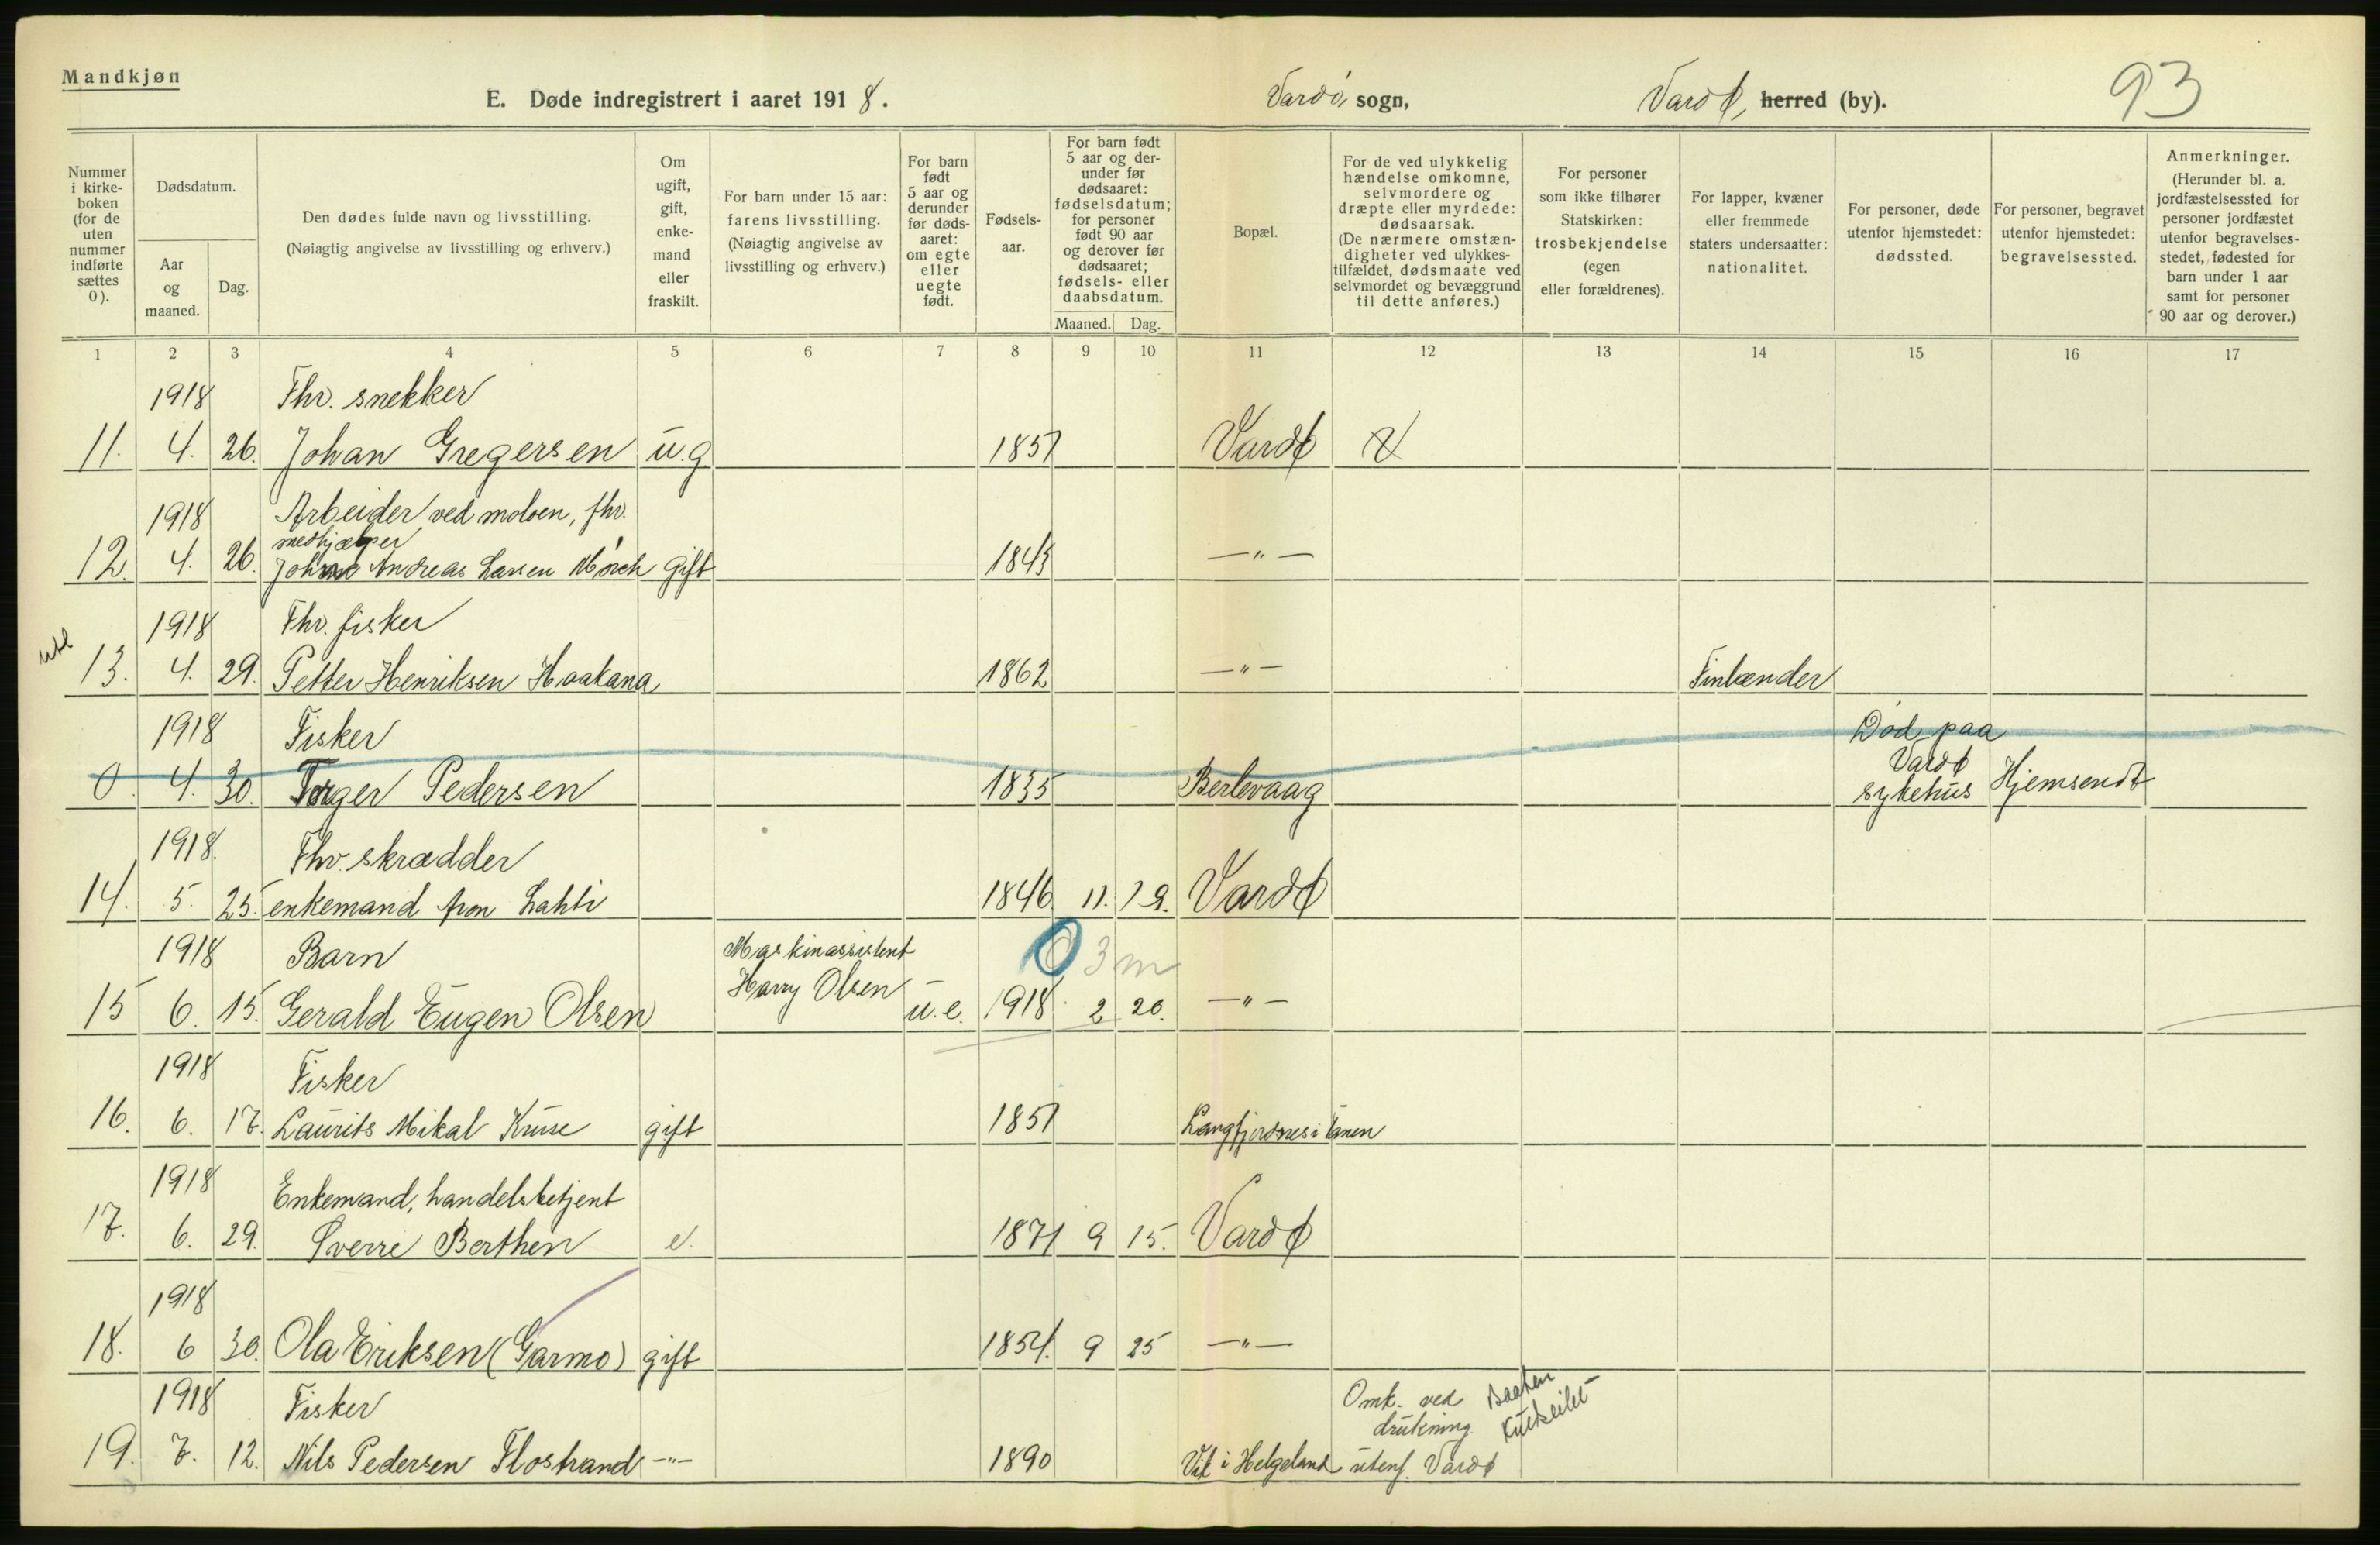 Mandkjøn
E. Døde indregistrert i aaret 1918.
Vardø sogn,
Vardø, herred (by).
93
Nummer i kirkeboken (for de uten nummer indførte sættes 0).
Dødsdatum.
Aar og maaned.
Dag.
Den dødes fulde navn og livsstilling.
(Nøiagtig angivelse av livsstilling og erhverv.)
Om ugift, gift, enkemand eller fraskilt.
For barn under 15 aar: farens livsstilling.
(Nøiagtig angivelse av livsstilling og erhverv.)
For barn født 5 aar og derunder før dødsaaret: om egte eller uegte født.
Fødselsaar.
For barn født 5 aar og derunder før dødsaaret: fødselsdatum; for personer født 90 aar og derover før dødsaaret; fødsels- eller daabsdatum.
Maaned. Dag.
Bopæl.
For de ved ulykkelig hændelse omkomne, selvmordere og dræpte eller myrdede: dødsaarsak.
(De nærmere omstændigheter ved ulykkestilfældet, dødsmaate ved selvmordet og bevæggrund til dette anføres.)
For personer som ikke tilhører Statskirken: trosbekjendelse (egen eller forældrenes).
For lapper, kvæner eller fremmede staters undersaatter: nationalitet.
For personer, døde utenfor hjemstedet: dødssted.
For personer, begravet utenfor hjemstedet: begravelsessted.
Anmerkninger.
(Herunder bl. a. jordfæstelsessted for personer jordfæstet utenfor begravelsesstedet, fødested for barn under 1 aar samt for personer 90 aar og derover.)
1 2 3 4 5 6 7 8 9 10 11 12 13 14 15 16 17
1918 Fhv. snekker
11. 4. 26. Johan Gregersen u.g. 1857 Vardø
1918 Arbeider ved moloen, fhv.
medhjælper
12. 4. 26. Andreas Larsen Mørch gift 1843 —"—
1918 Fhv. fisker
13. 4. 29. Petter Henriksen Haakana 1862 —"— Finlænder
1918 Fisker Død paa
Vardø
0 4. 30. Torger Pedersen 1835 Berlevaag sykehus Hjemsendt
1918. Fhv. skrædder
14. 5. 25. enkemand Aron Lahti 1846 11. 19. Vardø
1918 Barn Maskinassistent 0 3 m
Harry Olsen
15 6. 15. Gerald Eugen Olsen u.e. 1918 2 20. —"—
1918 Fisker
16. 6. 17. Laurits Mikal Kruse gift 1851 Langfjordnes i Tanen
1918 Enkemand, handelsbetjent
17. 6. 29. Sverre Berthen e. 1871 9 15. Vardø
1918
18. 6 30. Ola Eriksen (Garmo) gift 1854. 9 25 —"—
1918 Fisker Omk. ved Baaten
drukning kulseilet
19. 7. 12. Nils Pedersen Flostrand —"— 1890 Vik i Helgeland utenf. Vardø